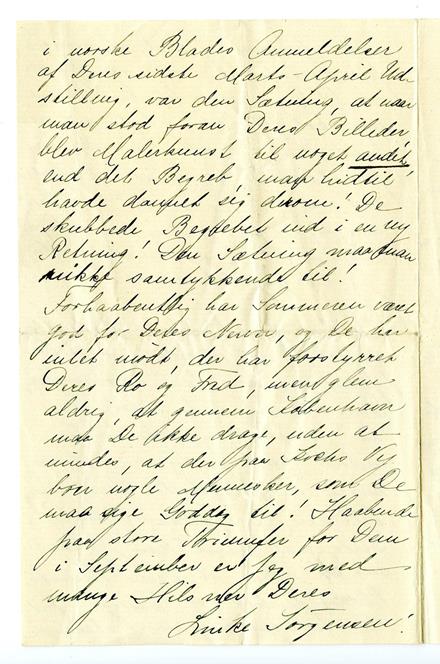 i norske Blades Anmeldelser
af Deres sidste Marts-April Ud-
stilling, var den Sætning, at naar
man stod foran Deres Billeder
blev Malerkunst til noget andet
end det Begreb man hidtil
havde dannet sig derom! De
skubbede Begrebet ind i en ny
Retning! Den Sætning maa man
nikke samtykkende til!
Forhaabentlig har Sommeren været
god for Deres Nerver, og De har
intet mødt, der har forstyrret
Deres Ro og Fred, men glem
aldrig, at gennem København
maa De ikke drage, uden at
mindes, at der paa Kochs Vej
boer nogle Mennesker, som De
maa sige Goddag til! Haabende
paa store Triumfer for Dem
i September er jeg med
mange Hilsner Deres
Linke Jørgensen!